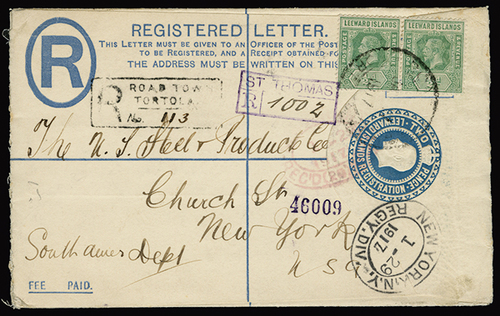 REGISTERED LETTER.
THIS LETTER MUST BE GIVEN TO AN OFFICER OF THE POST
TO BE REGISTERED, AND A RECEIPT OBTAINED FOR
THE ADDRESS MUST BE WRITTEN ON THIS
R
LEEWARD ISLANDS
LEEWARD ISLANDS
R
ROAD TOWN
TORTOLA.
No. 113
ST. THOMAS
R. 1002
The U. S. Steel Products Co
TWO PENCE
LEEWARD ISLANDS REGISTRATION
REC'D
Church St.
46009
New York
U S A
South Amer Dept
NEW YORK, N.Y.
1 29
1917
REG'Y. DIV.
FEE PAID.